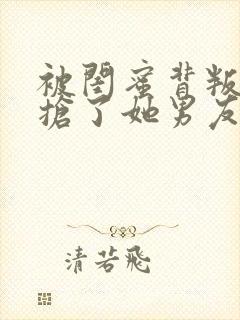 被閨蜜背叛
搶了她男友
清若飛